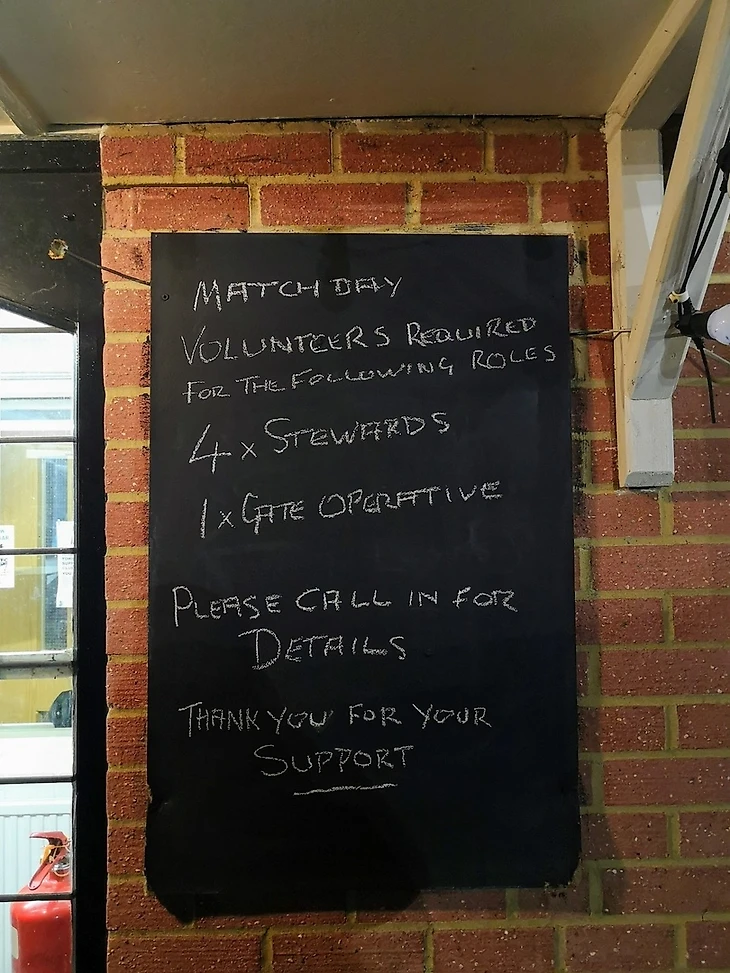 MATCH DAY
VOLUNTEERS REQUIRED
FOR THE FOLLOWING ROLES
4 x STEWARDS
1 x GATE OPERATIVE
PLEASE CALL IN FOR
DETAILS
THANK YOU FOR YOUR
SUPPORT